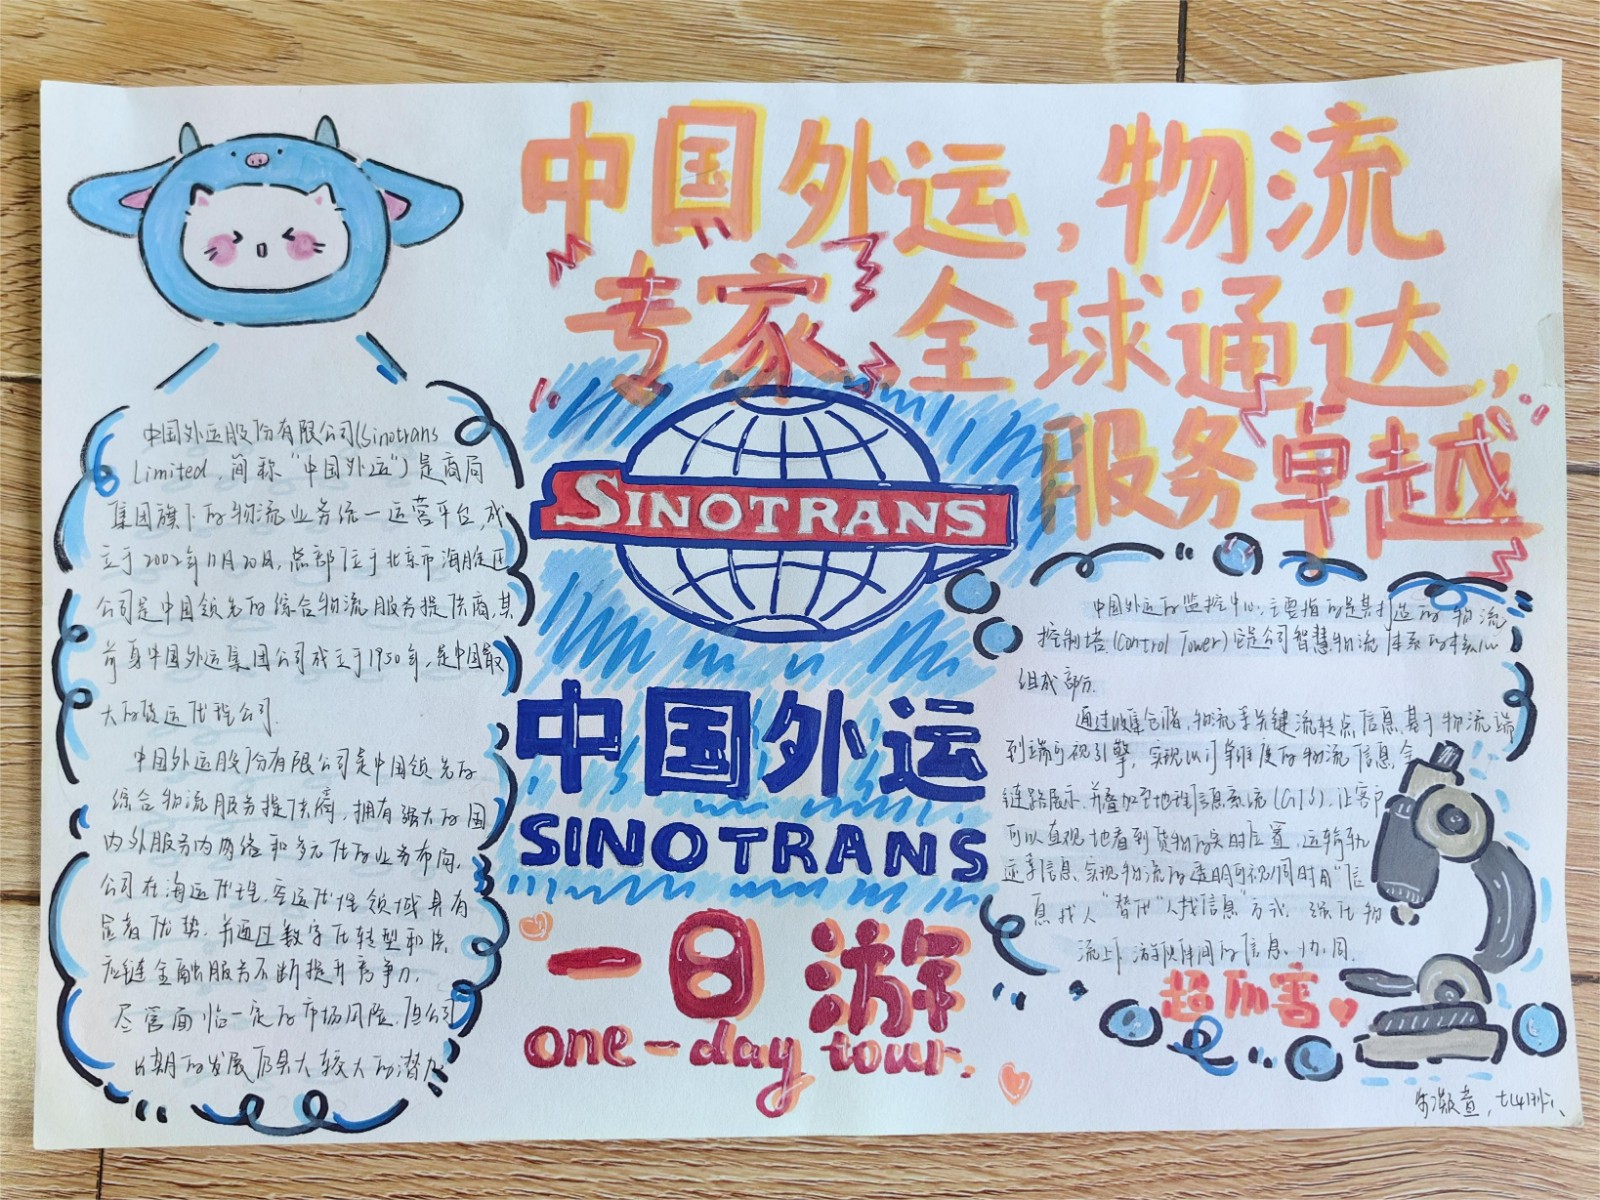 中国外运,物流
专家,全球通达,
服务卓越
中国外运股份有限公司(Sinotrans
Limited,简称“中国外运”)是商局
集团旗下的物流业务统一运营平台,成
立于2002年11月20日,总部位于北京市海淀区
公司是中国领先的综合物流服务提供商,其
前身中国外运集团公司成立于1950年,是中国最
大的货运代理公司.
中国外运股份有限公司是中国领先的
综合物流服务提供商,拥有强大的国
内外服务内网络和多元化的业务布局.
公司在海运代理,空运代理领域具有
显著优势,并通过数字化转型和供
应链金融服务不断提升竞争力.
尽管面临一定的市场风险,但公司
长期的发展仍具大较大的潜力
SINOTRANS
中国外运
SINOTRANS
一日游
one-day tour.
中国外运的监控中心,主要指的是其打造的物流
控制塔(Control Tower)它是公司智慧物流体系的核心
组成部分.
通过收集仓储,物流等关键流转点信息,基于物流端
到端可视引擎,实现以订单维度的物流信息全
链路展示,并叠加至地理信息系统(GIS),让客户
可以直观地看到货物的实时位置,运输轨
迹等信息,实现物流的透明可视,同时用“信
息找人”替代“人找信息”方式,强化物
流上下游伙伴间的信息协同.
超厉害